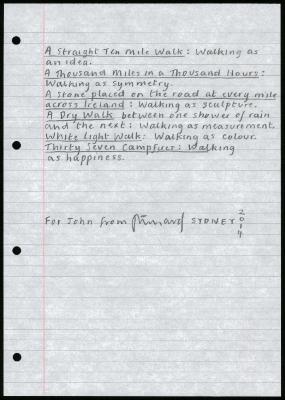 A Straight Ten Mile Walk: Walking as
an idea.
A Thousand Miles in a Thousand Hours:
Walking as symmetry.
A Stone placed on the road at every mile
across Ireland: Walking as sculpture.
A Dry Walk between one shower of rain
and the next: Walking as measurement.
White Light Walk: Walking as colour.
Thirty Seven Campfires: Walking
as happiness.
For John from SYDNEY 2014